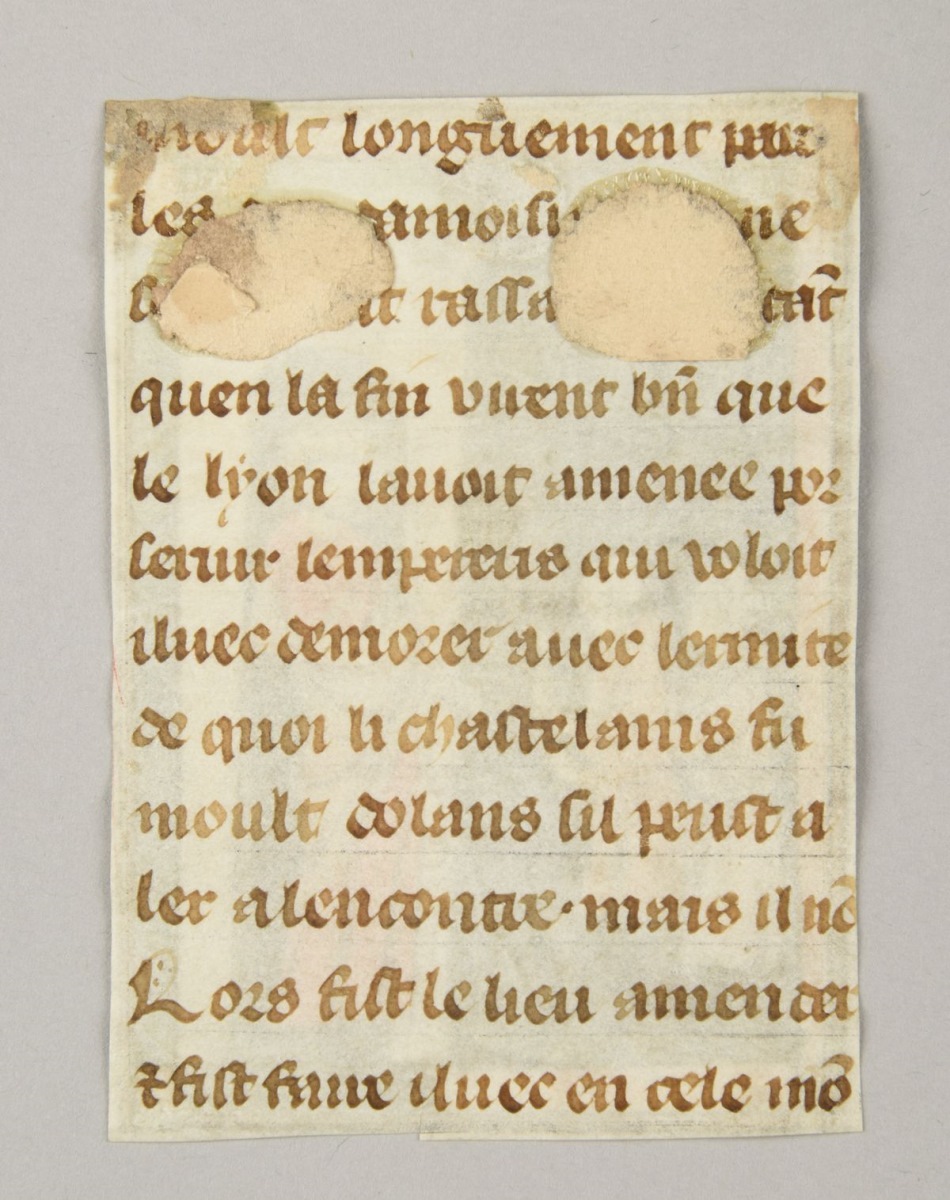 moult longuement par
les damoisi ne
it rassa tāt
quen la fin virent bn̄ que
le lyon lauoit amenee por
seruir lempereris qui voloit
iluec demorer auec lermite
de quoi li chastelains fu
moult dolans sil peust a
ler alencontre· mais il nō
Lors fist le lieu amender
⁊ fist faire iluec en cele mō